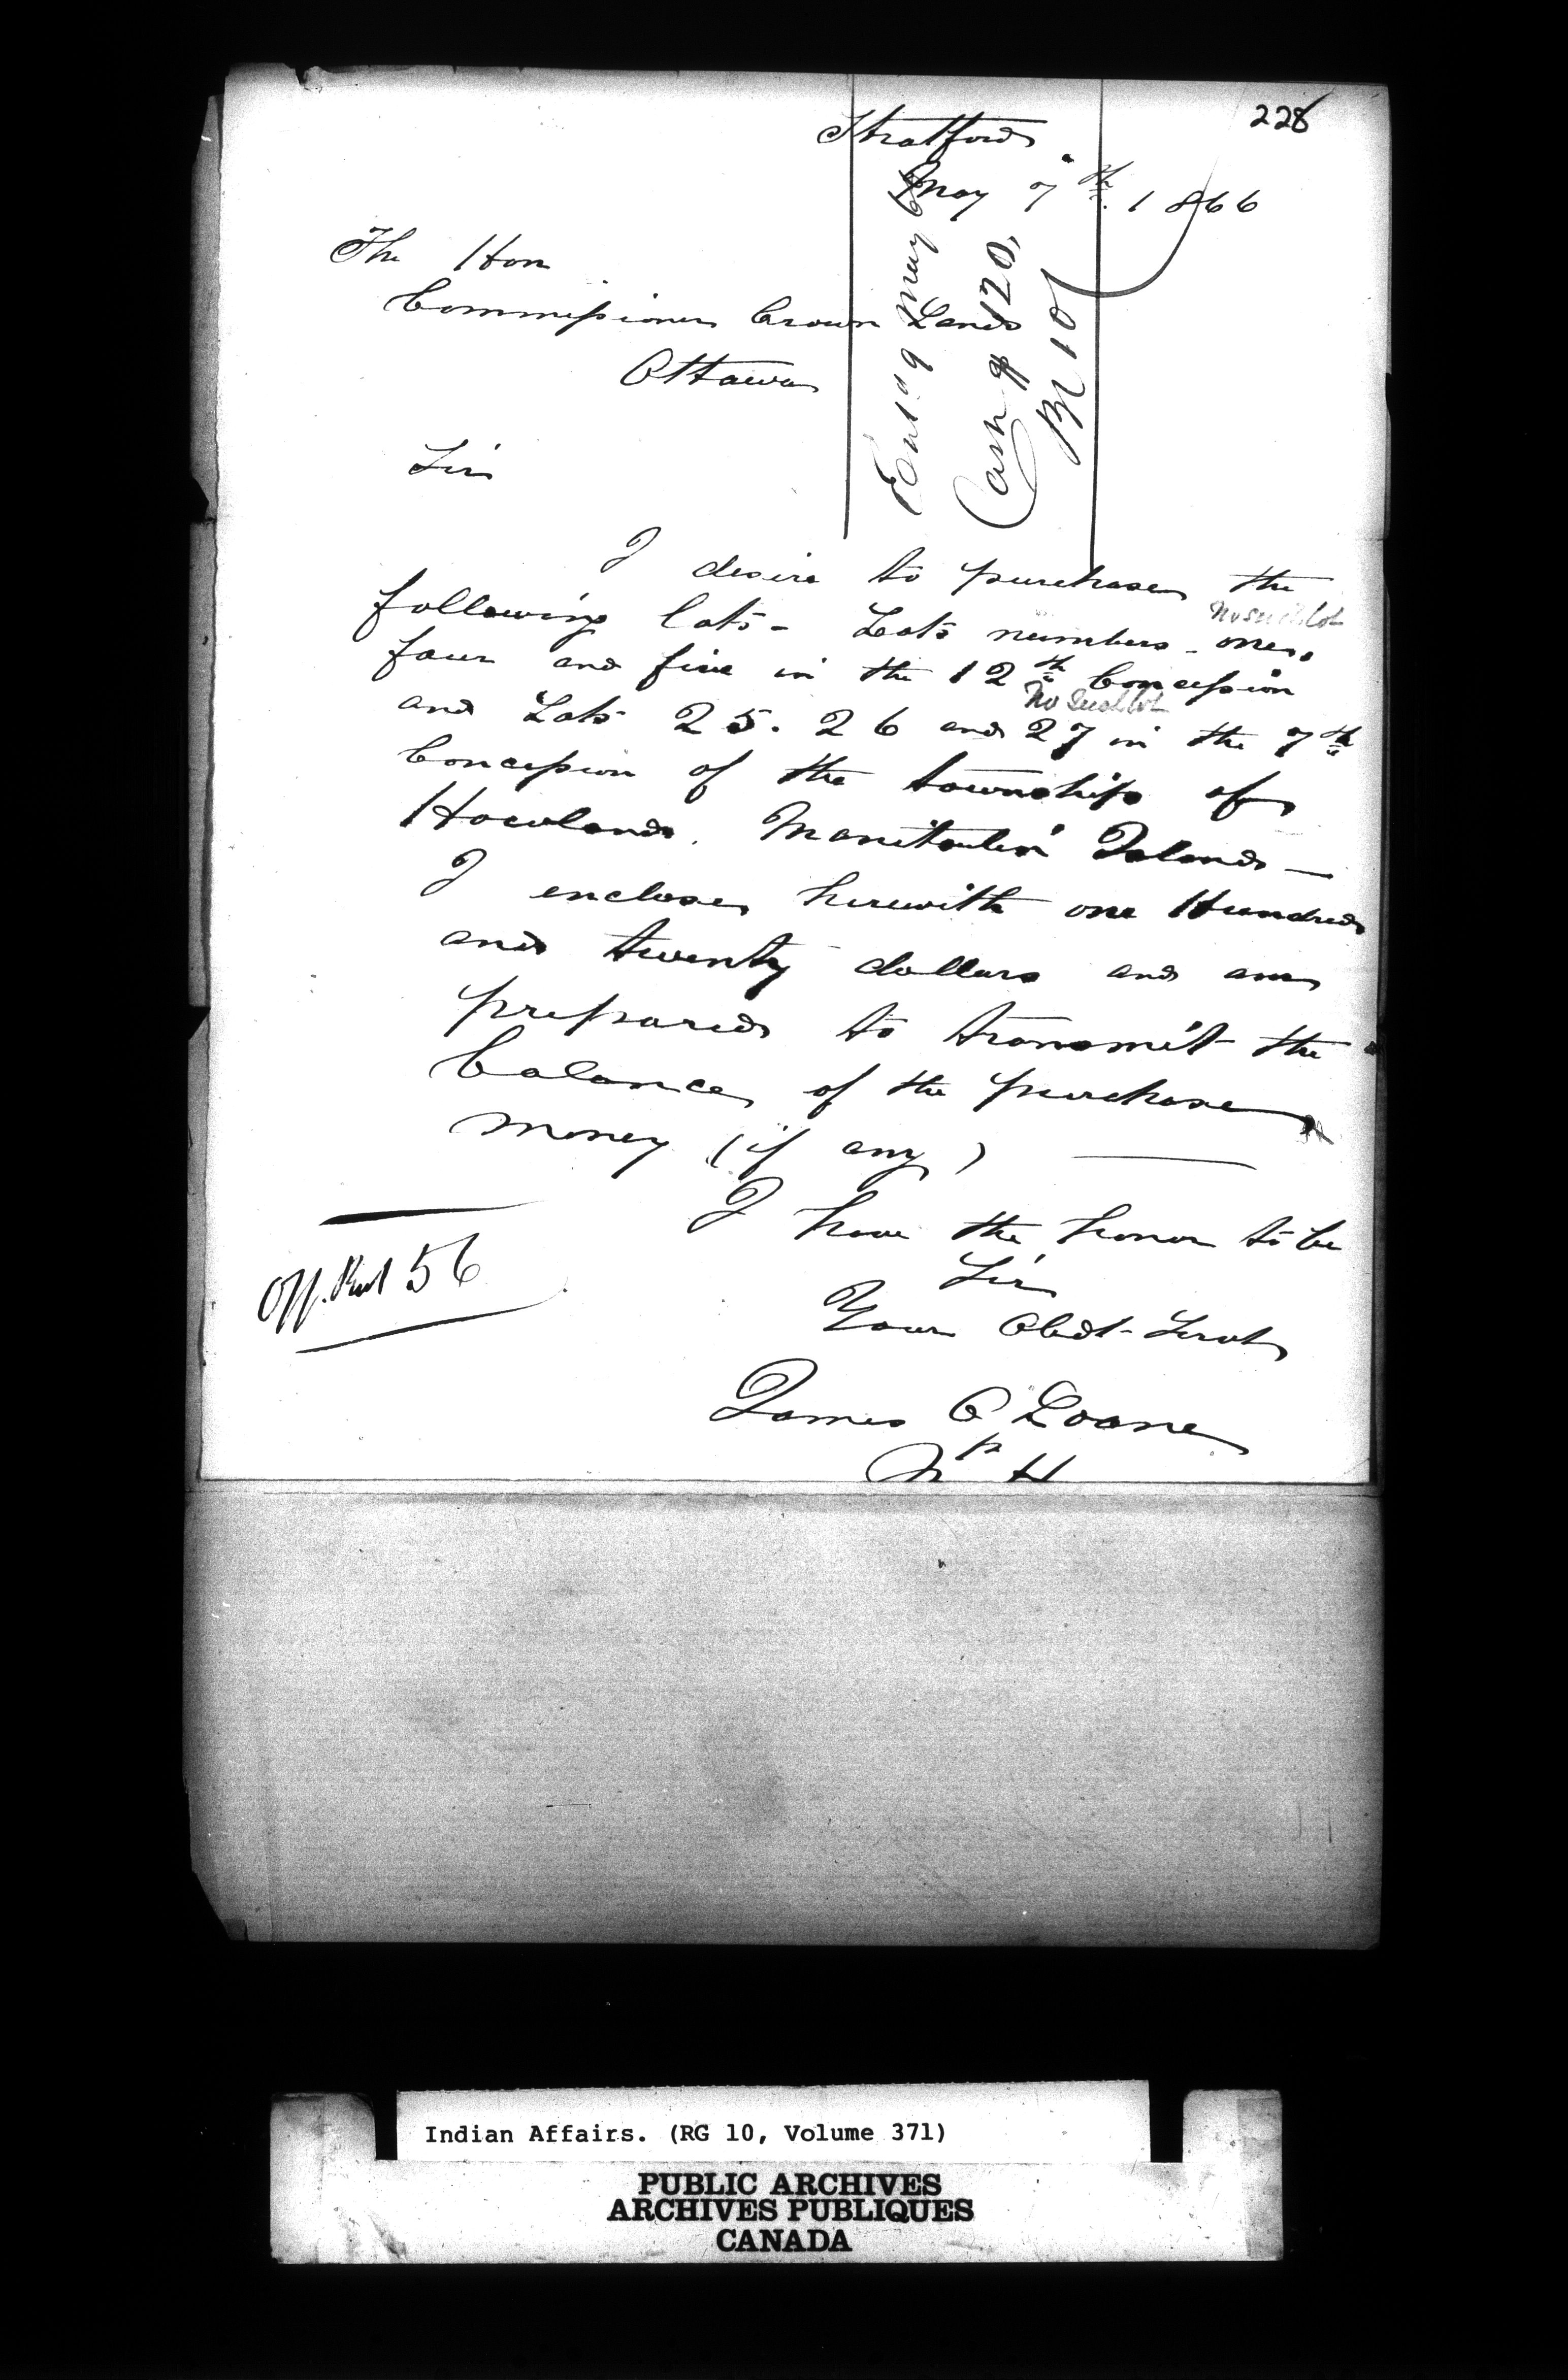 228
Stratford
May 7th. 1866
The Hon
Commissioner Crown Lands
Ottawa
Ent'd 9 May 66
Cash $120,
Sir
I desire to purchase the
No such lot
following lots - Lots numbers one,
four and five in the 12th Concession
No such lot
and Lots 25. 26 and 27 in the 7th
Concession of the township of
Howland. Manitoulin Island —
I enclose herewith one Hundred
and twenty dollars and am
prepared to transmit the
balance of the purchase
money (if any) —
I have the honor to be
Sir
Your Obdt Servt
Off. 56
James C Loane
p
H
Indian Affairs. (RG 10, Volume 371)
PUBLIC ARCHIVES
ARCHIVES PUBLIQUES
CANADA